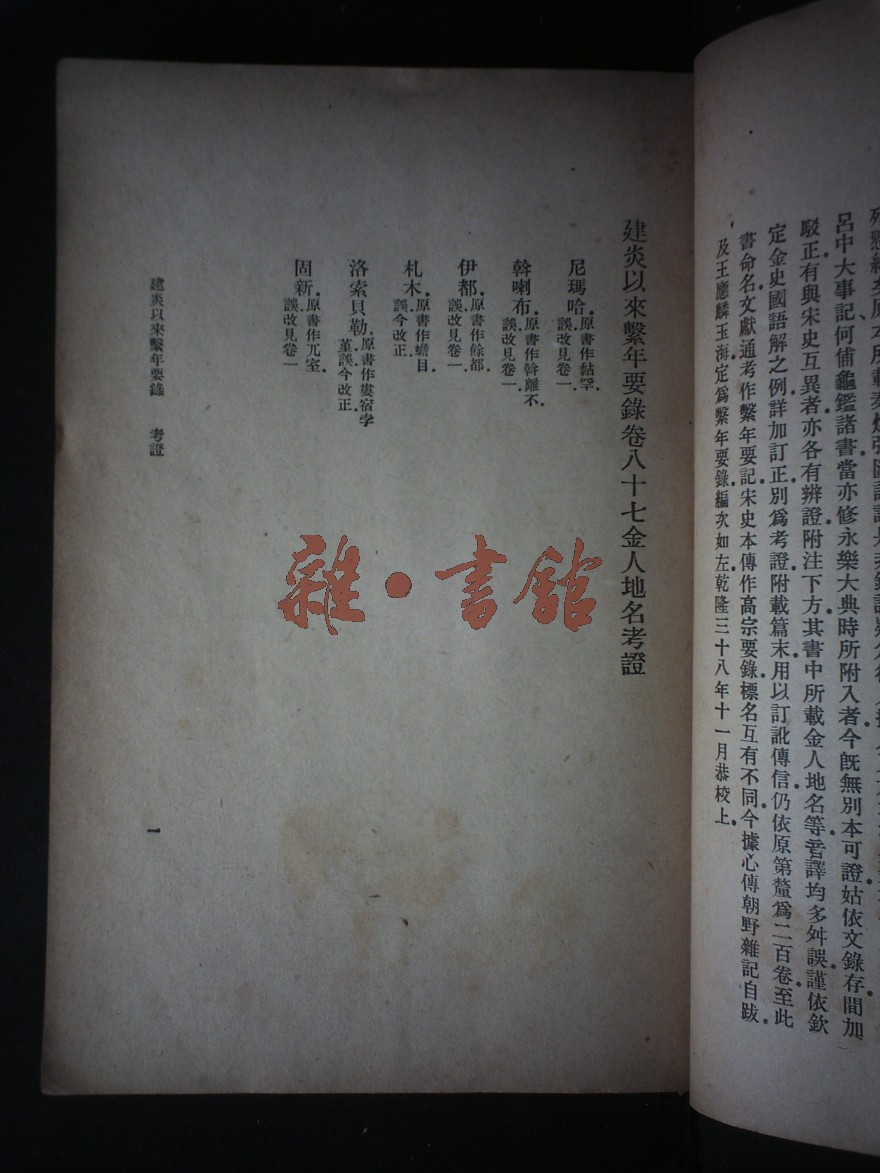 呂中大事記何俌龜鑑諸書當亦修永樂大典時所附入者今旣無別本可證姑依文錄存間加
駁正有與宋史互異者亦各有辨證附注下方其書中所載金人地名等音譯均多舛誤謹依欽
定金史國語解之例詳加訂正別爲考證附載篇末用以訂訛傳信仍依原第釐爲二百卷至此
書命名文獻通考作繫年要記宋史本傳作高宗要錄標名互有不同今據心傳朝野雜記自跋
及王應麟玉海定爲繫年要錄編次如左乾隆三十八年十一月恭校上
建炎以來繫年要錄卷八十七金人地名考證
尼瑪哈原書作黏罕誤改見卷一
斡喇布原書作斡離不誤改見卷一
伊都原書作餘都誤改見卷一
札木原書作蟾目誤今改正
洛索貝勒原書作婁宿孛菫誤今改正
固新原書作兀室誤改見卷一
建炎以來繫年要錄 考證
一
雜·書館